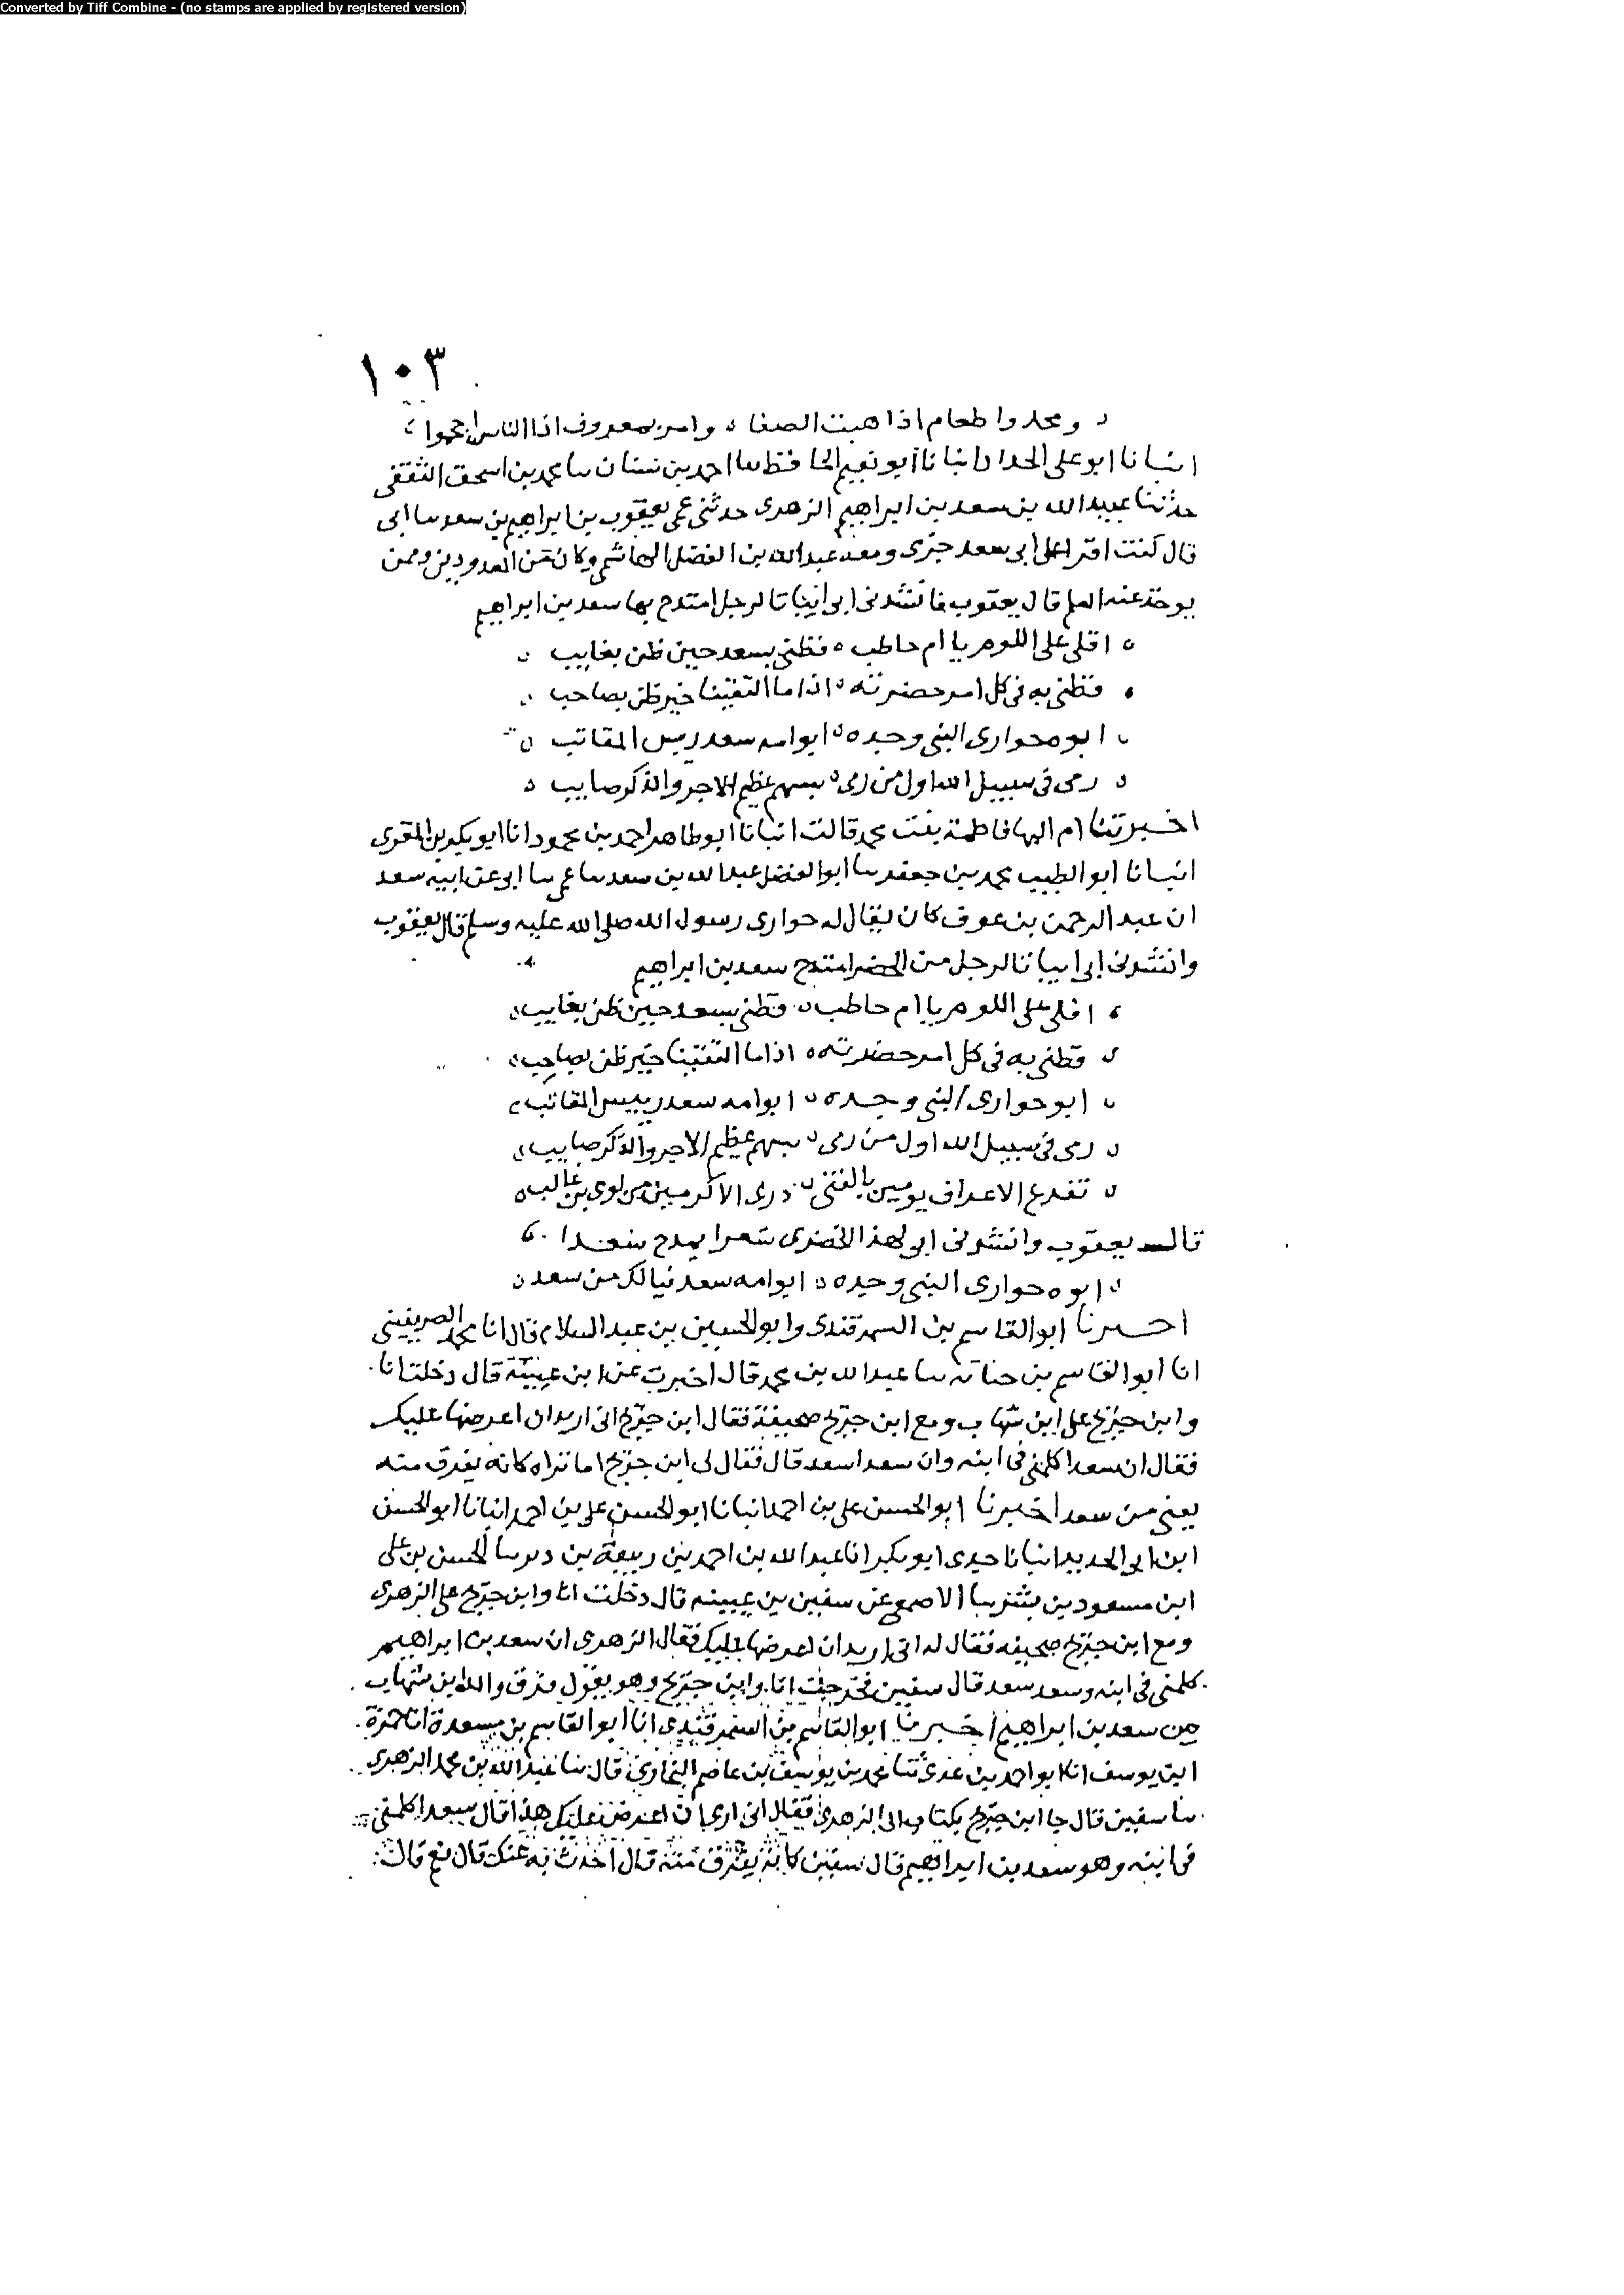 Converted by Tiff Combine - (no stamps are applied by registered version)
١٠٣
ومحدوا طعام اذا هبت الصفا وامر بمعروف اذا الناس احجموا
انبانا ابو على الحداد انبانا أبو نعيم الحافظ سا احمد بن سنان سا محمد بن اسحق الثقفى
حدثنا عبيد الله بن سعد بن ابراهيم الزهرى حدثنى عمى يعقوب بن ابراهيم بن سعد سا ابى
قال كنت اقرا على ابى سعد جزى ومعه عبد الله بن الفضل الهاشمى وكان من المعدودين وممن
يوخذ عنه العلم قال يعقوب فانشدنى ابى ابياتا لرجل امتدح بها سعد بن ابراهيم
اقلى على اللوم يا ام حاطب فظنى بسعد حين ظن بغايب
فظنى به فى كل امر حضرته اذا ما التقينا خير ظن بصاحب
ابوه حوارى النبى وجده ابو امه سعد ريس المقانب
رمى فى سبيل الله اول من رمى بسهم عظيم الاجر والذكر صايب
اخبرتنا ام البها فاطمة بنت محمد قالت انبانا ابو طاهر احمد بن محمود انا ابو بكر بن المقرى
انبانا ابو الطيب محمد بن جعفر سا ابو الفضل عبد الله بن سعد سا عمى سا ابى عن ابيه سعد
ان عبد الرحمن بن عوف كان يقال له حوارى رسول الله صلى الله عليه وسلم قال يعقوب
وانشدنى ابى ابياتا لرجل من الخضر امتدح سعد بن ابراهيم
اقلى على اللوم يا ام حاطب فظنى بسعد حين ظن بغايب
فظنى به فى كل امر حضرته اذا ما التقينا خير ظن بصاحب
ابو حوارى النبى وجده ابو امه سعد رييس المقانب
رمى فى سبيل الله اول من رمى بسهم عظيم الاجر والذكر صايب
تفرع الاعراف يومين بالفتى ذرى الاكرمين من لوى بن غالب
قال يعقوب وانشدنى ابى لهذا الخضرى شعرا يمدح سعدا
ابوه حوارى النبى وجده ابو امه سعد فيالك من سعد
احبرنا ابو القاسم بن السمرقندى وابو الحسين بن عبد السلام قال انا محمد الصريفينى
انا ابو القاسم بن حبابه سا عبد الله بن محمد قال اخبرت عن ابن عيينة قال دخلت انا
وابن جريج على ابن شهاب ومع ابن جريج صحيفة فقال ابن جريج انى اريد ان اعرضها عليك
فقال ان سعدا كلمنى فى ابنه وان سعدا سعد قال فقال لى ابن جريج اما تراه كانه يفرق منه
يعنى من سعد اخبرنا ابو الحسن على بن احمد انبانا ابو الحسن على بن احمد انبانا ابو الحسن
ابن ابى الحديد انبانا جدى ابو بكر انا عبد الله بن احمد بن ربيعة بن دير سا الحسن بن على
ابن مسعود بن بشر سا الاصمعى عن سفين بن عيينه قال دخلت انا وابن جريج على الزهرى
ومع ابن جريج صحيفه فقال له انى اريد ان اعرضها عليك فقال الزهرى ان سعد بن ابراهيم
كلمنى فى ابنه وسعد سعد قال سفين فخرجت انا وابن جريج وهو يقول فرق والله ابن شهاب
من سعد بن ابراهيم اخبرنا ابو القاسم بن السمرقندى انا ابو القاسم بن مسعدة انا حمزة
ابن يوسف انا ابو احمد بن عدى ثنا محمد بن يوسف بن عاصم البخارى قال سا عبد الله بن محمد الزهرى
سا سفين قال جا ابن جريج بكتاب الى الزهرى فقال انى اريد ان اعرض عليك هذا قال سعد كلمنى
فى ابنه وهو سعد بن ابراهيم قال سفين كانه يفرق منه قال احدث به عنك قال نعم قال